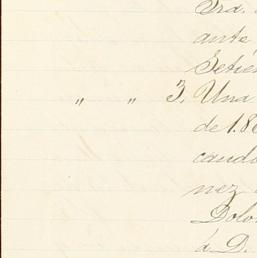 Sra.
ante
Setie
" " 3. Una
de 1.86
caudo
nez
Dolo
á D.